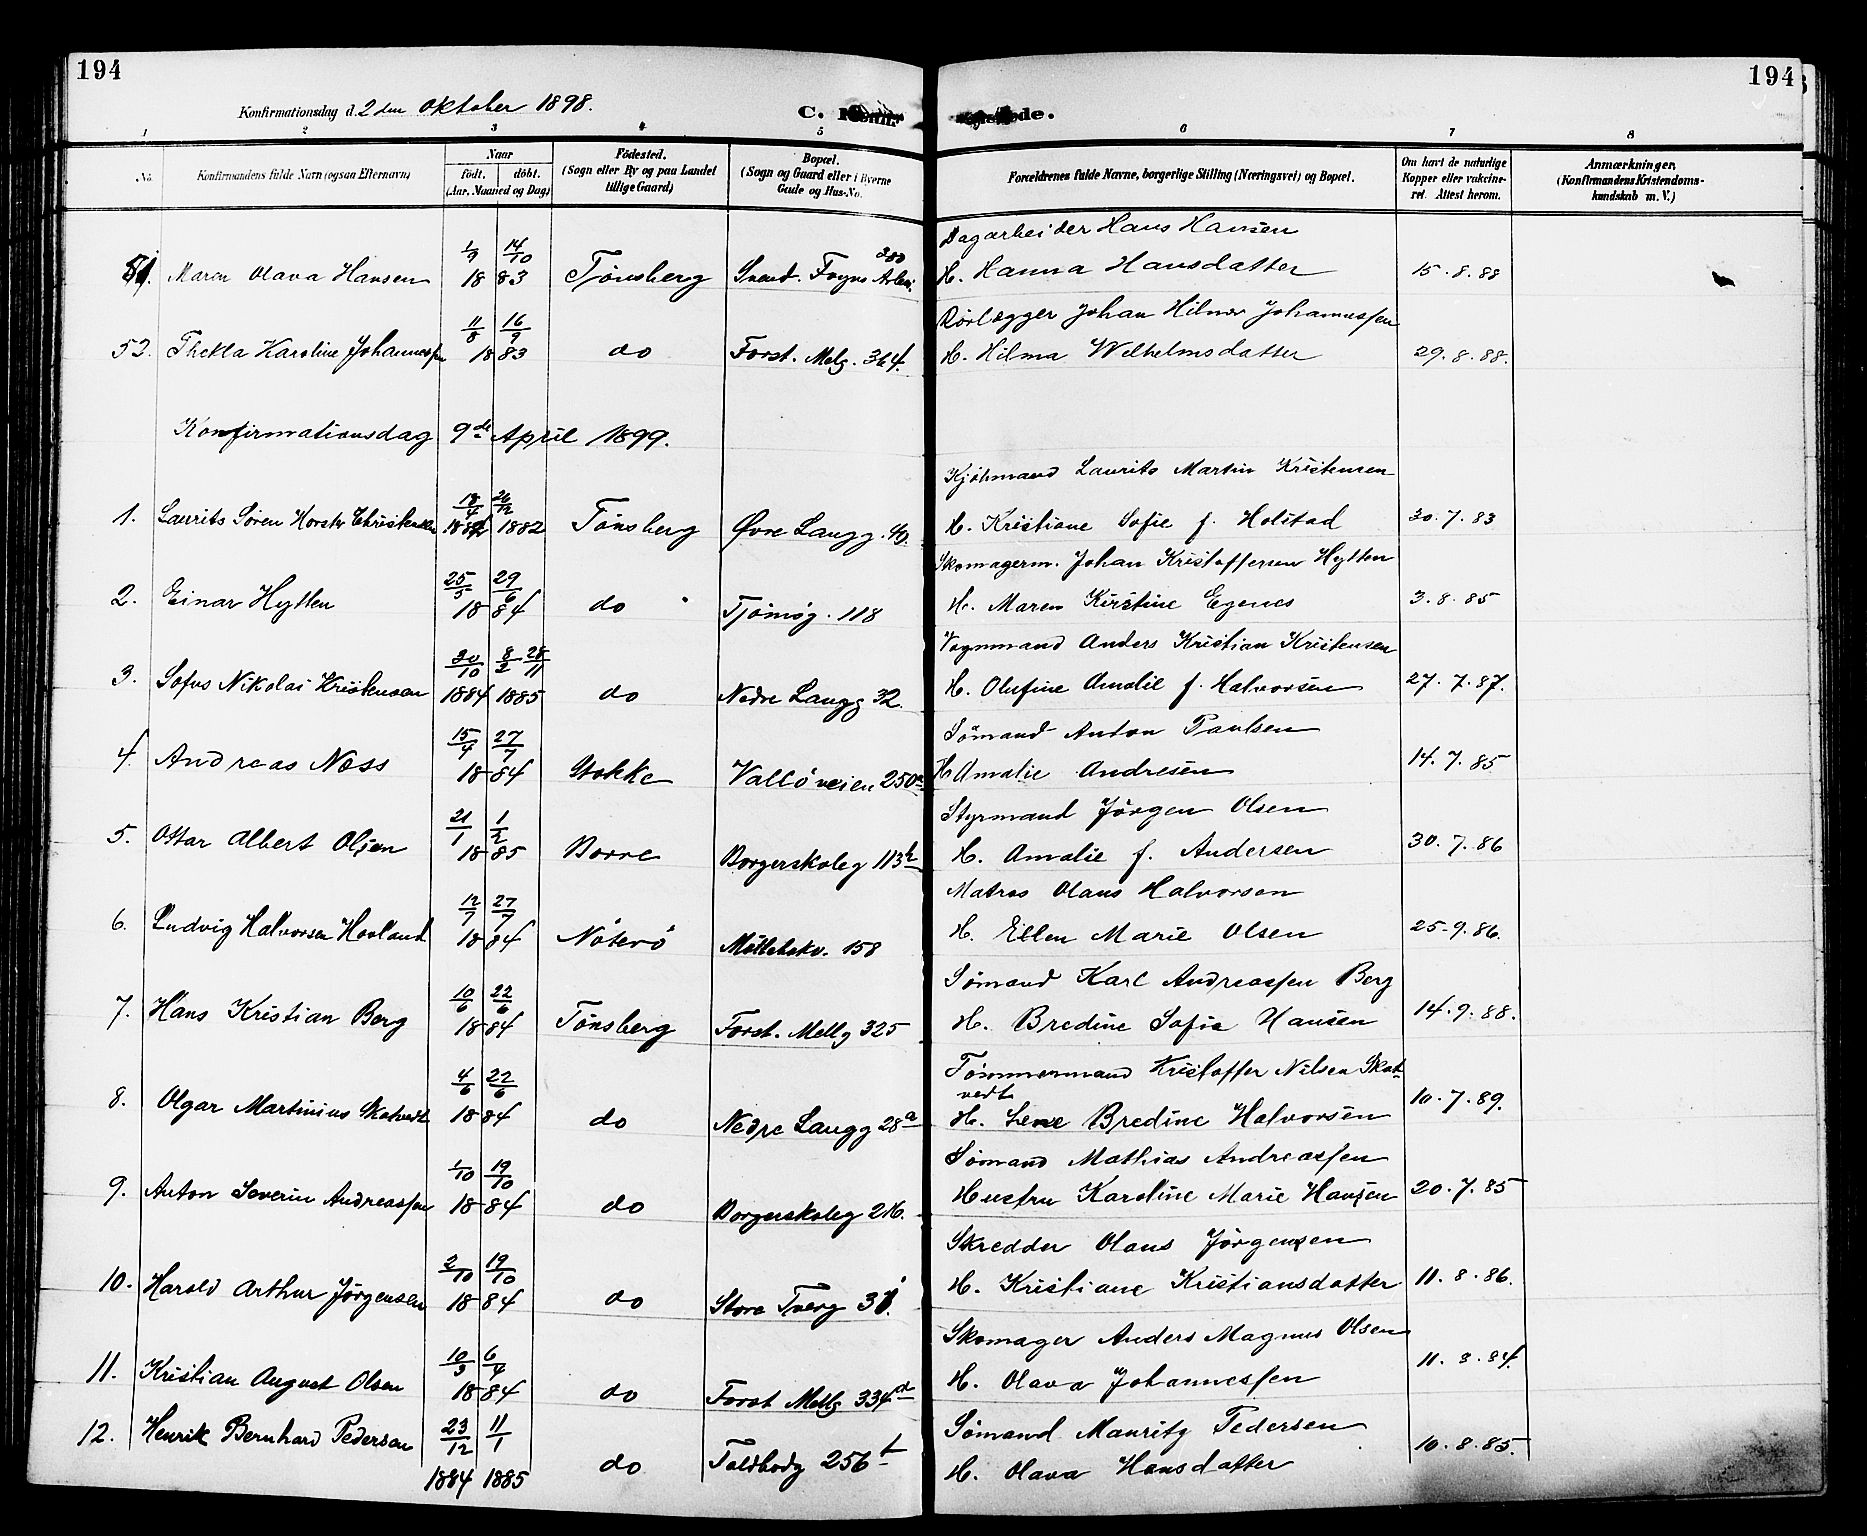 194
194
Konfirmationsdag d. 2den Oktober 1898.
C.
de.
1 2 3 4 5 6 7 8
No.
Konfirmandens fulde Navn (ogsaa Efternavn)
Naar
født. døbt.
(Aar, Maaned og Dag)
Fødested.
(Sogn eller By og paa Landet
tillige Gaard)
Bopæl.
(Sogn og Gaard eller i Byerne
Gade og Hus-No.
Forældrenes fulde Navne, borgerlige Stilling (Næringsvei) og Bopæl.
Om havt de naturlige
Kopper eller vakcine-
ret. Attest herom.
Anmærkninger.
(Konfirmandens Kristendoms-
kundskab m. V.)
Dagarbeider Hans Hansen
51. Maren Olava Hansen 1/9 14/10 1883 Tønsberg Svend. Foyns 380 H. Hanna Hansdatter 15.8.88
Rørlægger Johan Hilmer Johannessen
52. Thekla Karoline Johannessen 11/8 16/9 1883 do Forst. Melg. 364. H. Hilma Wilhelmsdatter 29.8.88.
Konfirmationsdag 9de April 1899.
Kjøbmand Laurits Martin Kristensen
1. Laurits Søren Horst Christensen 18/4 1882 26/12 1882 Tønsberg Øvre Langg. 40. H. Kristiane Sofie f. Holstad 30.7.83
Skomagerm. Johan Kristoffersen Hytten
2. Einar Hytten 25/5 29/6 1884 do Tjømøg. 118 H. Maren Kirstine Egenes 3.8.85
Vognmand Anders Kristian Kristensen
3. Sofus Nikolai Kristensen 30/10 1884 8/2 28/11 1885 do Nedre Langg 32. H. Olufine Amalie f. Halvorsen 27.7.87.
Sømand Anton Paulsen
4. Andreas Næss 15/4 27/7 1884 Stokke Valløveien 250 H Amalie Andresen 14.7.85
Styrmand Jörgen Olsen
5. Ottar Albert Olsen 21/1 1/2 1885 Borre Borgerskoleg 113 H. Amalie f. Andersen 30.7.86
Matros Olaus Halvorsen
6. Ludvig Halvorsen Hovland 12/7 27/7 1884 Nøterø Møllebakv. 158 H. Ellen Marie Olsen 25.9.86.
Sømand Karl Andreassen Berg
7. Hans Kristian Berg 10/6 22/6 1884 Tønsberg Forst. Mellg 325 H. Bredine Sofie Hansen 14.9.88.
Tømmermand Kristoffer Nilsen Skat-
vedt
8. Olgar Martinius Skatvedt 4/6 22/6 1884 do Nedre Langg 28a H. Lene Bredine Halvorsen 10.7.89.
Sømand Mathias Andreassen
9. Anton Severin Andreassen 1/10 19/10 1884 do Borgerskoleg 216. Hustru Karoline Marie Hansen 20.7.85
Skredder Olaus Jørgensen
10. Harald Arthur Jørgensen 2/10 19/10 1884 do Store Tverg H. Kristiane Kristiansdatter 11.8.86.
Skomager Anders Magnus Olsen
11. Kristian August Olsen 10/3 6/4 1884 do Forst Mellg 334d H. Olava Johannessen 11.8.84.
Sømand Mauritz Pedersen
12. Henrik Bernhard Pedersen 23/12 1884 11/1 1885 do Toldbodg 256 H. Olava Hansdatter 10.8.85.